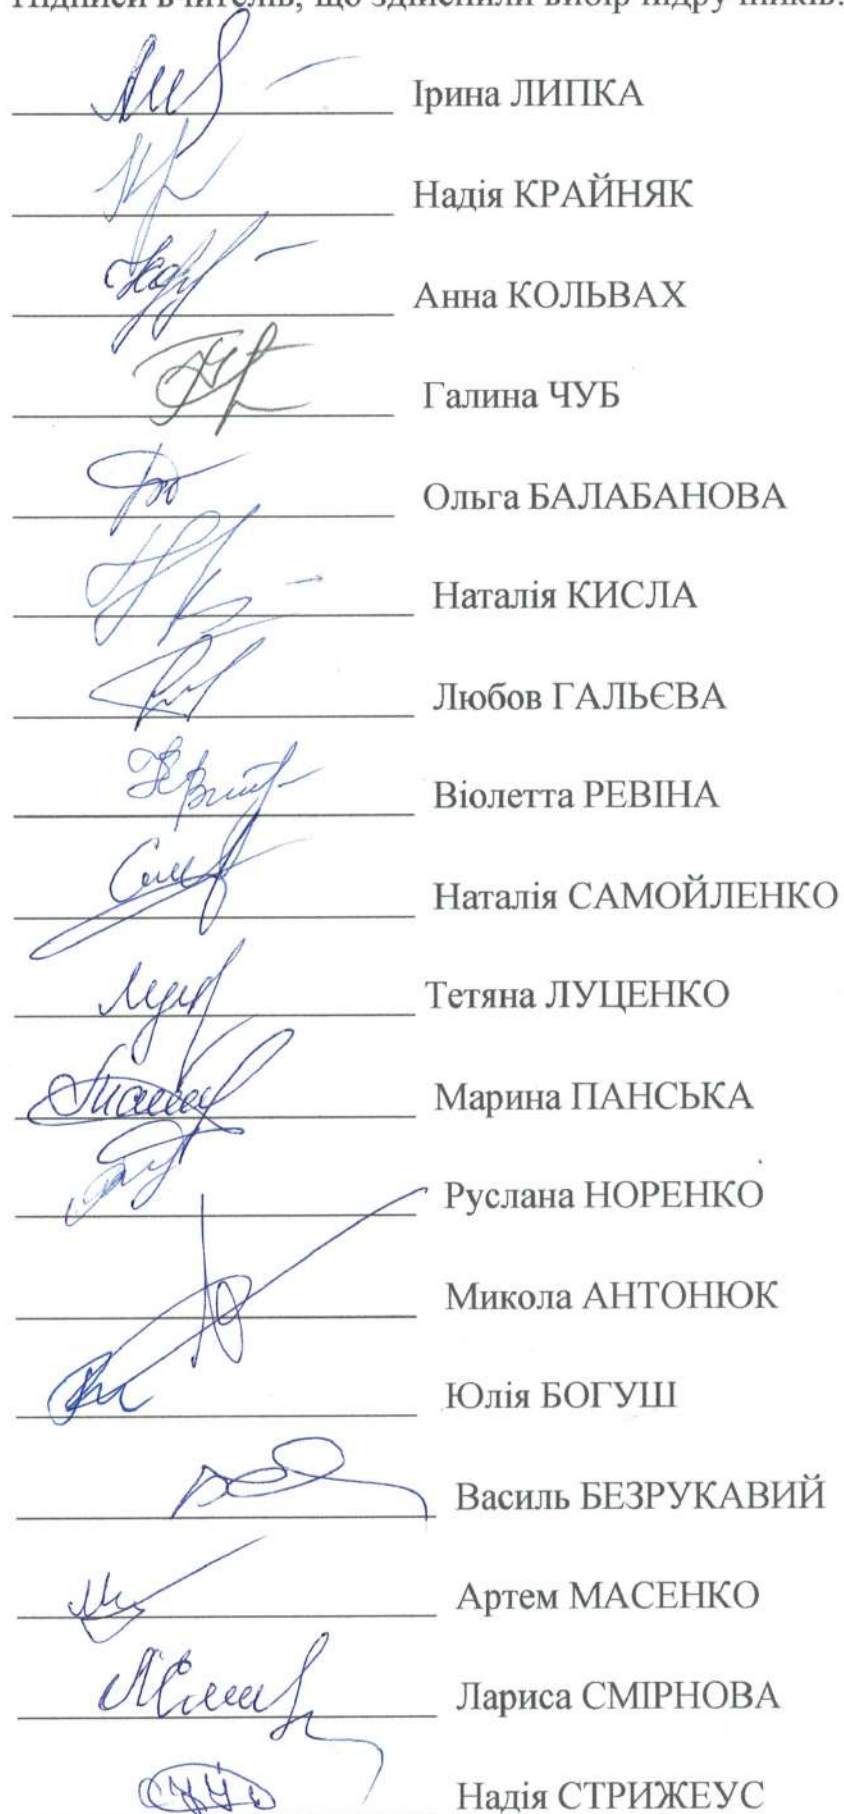 Підписи вчителів, що здійснили вибір підручників:
Ірина ЛИПКА
Надія КРАЙНЯК
Анна КОЛЬВАХ
Галина ЧУБ
Ольга БАЛАБАНОВА
Наталія КИСЛА
Любов ГАЛЬЄВА
Віолетта РЕВІНА
Наталія САМОЙЛЕНКО
Тетяна ЛУЦЕНКО
Марина ПАНСЬКА
Руслана НОРЕНКО
Микола АНТОНЮК
Юлія БОГУШ
Василь БЕЗРУКАВИЙ
Артем МАСЕНКО
Лариса СМІРНОВА
Надія СТРИЖЕУС